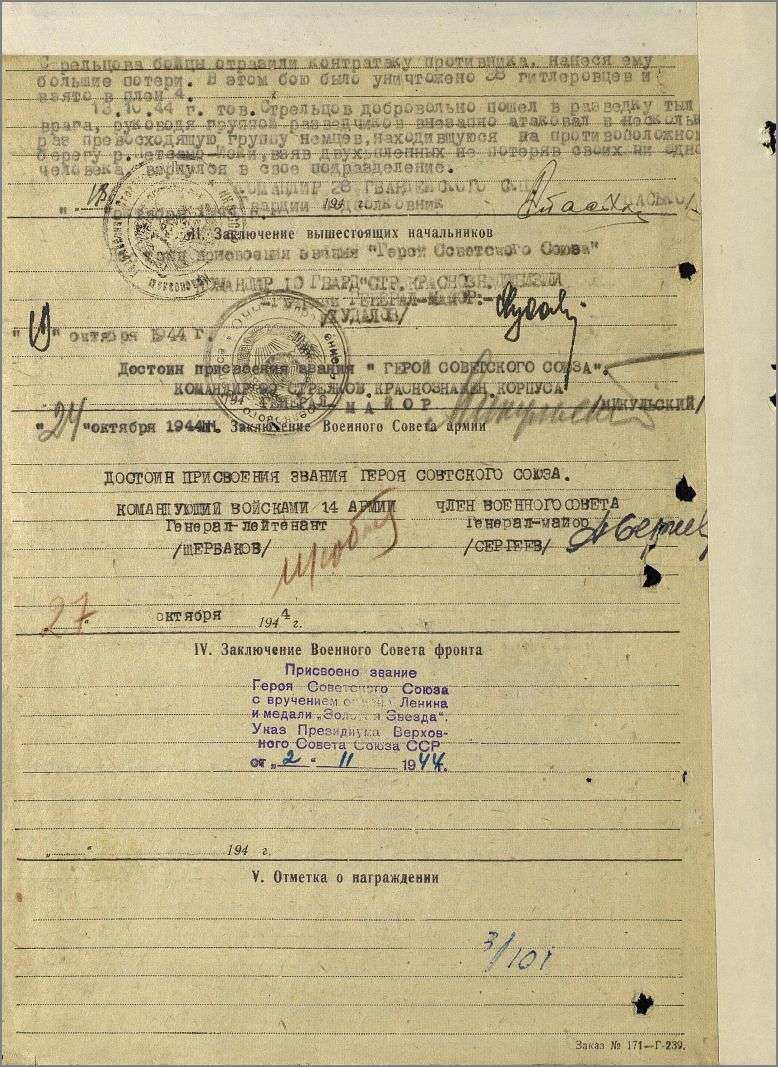 Стрельцова бойцы отразили контратаку противника, нанеся ему
большие потери. В этом бою было уничтожено 38 гитлеровцев и
взято в плен 4.
13.10.44 г. тов. Стрельцов добровольно пошел в разведку тыл
врага, руководя группой разведчиков внезапно атаковал в нескольк
раз превосходящую группу немцев, находившуюся на противоположном
берегу р. взяв двух пленных не потеряв своих ни одно
человека, вернулся в свое подразделение.
КОМАНДИР 28 ГВАРДЕЙСКОГО С.П.
194 г. гвардии подполковник /ПАСЬКО/
III. Заключение вышестоящих начальников
присвоения звания "Герой Советского Союза"
КОМАНДИР 10 ГВАРД. СТР. КРАСНОЗН. ДИВИЗИИ
ГЕНЕРАЛ-МАЙОР:-
/ХУДАЛОВ/
" " октября 1944 г.
Достоин присвоения звания " ГЕРОЙ СОВЕТСКОГО СОЮЗА".
КОМАНДИР 99 СТРЕЛКОВ. КРАСНОЗНАМЕН. КОРПУСА
ГЕНЕРАЛ - МАЙОР /МИКУЛЬСКИЙ/
"24" октября 1944 г. Заключение Военного Совета армии
ДОСТОИН ПРИСВОЕНИЯ ЗВАНИЯ ГЕРОЯ СОВТСКОГО СОЮЗА.
КОМАНДУЮЩИЙ ВОЙСКАМИ 14 АРМИИ ЧЛЕН ВОЕННОГО СОВЕТА
Генерал-лейтенант Генерал-майор
/ЩЕРБАКОВ/ /СЕРГЕЕВ/
27 октября 1944 г.
IV. Заключение Военного Совета фронта
Присвоено звание
Героя Советского Союза
с вручением ордена Ленина
и медали „Золотая Звезда".
Указ Президиума Верхов-
ного Совета Союза ССР
от „2" 11 1944.
„ " 194 г.
V. Отметка о награждении
3/101
Заказ № 171—Г-239.